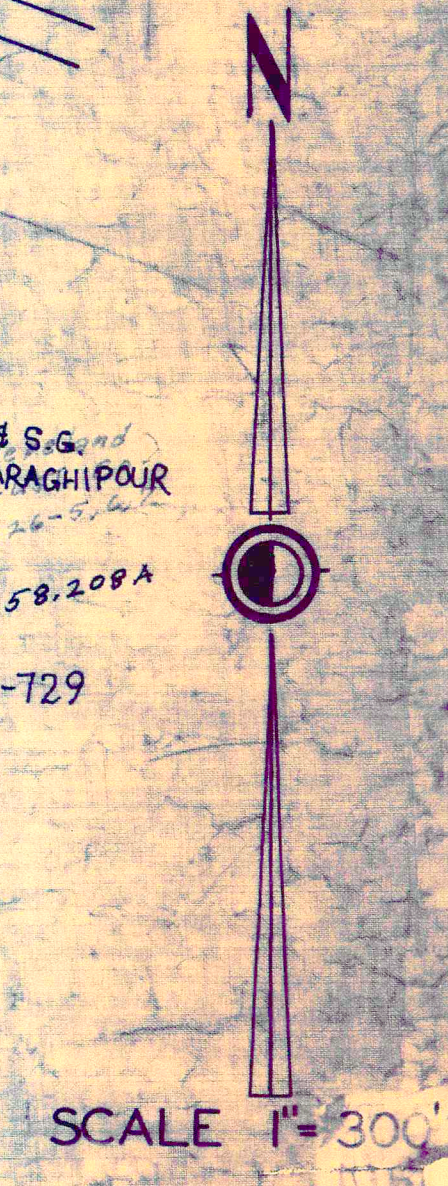 N
& S.G.
ARAGHIPOUR
26-5,6
58.208A
-729
SCALE 1"= 300'